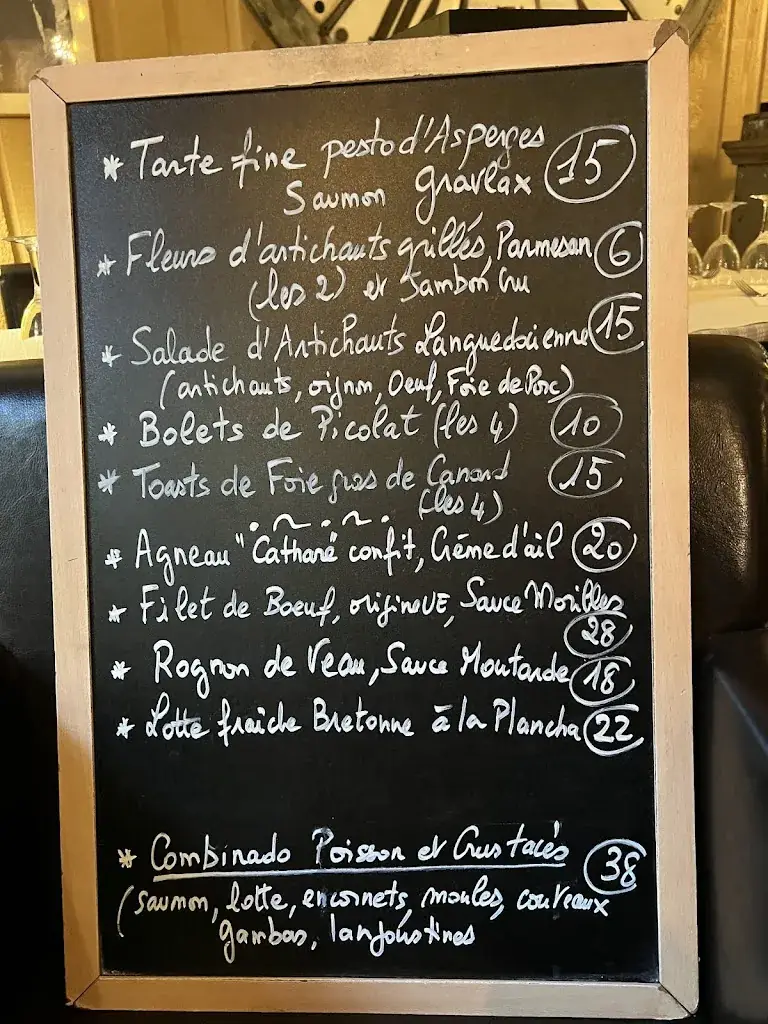 * Tarte fine pesto d'Asperges
Saumon gravlax 15
* Fleurs d'artichauts grillés, Parmesan 6
(les 2) et Jambon Cru
* Salade d'Artichauts Languedocienne 15
(artichauts, oignon, Oeuf, Foie de Porc)
* Bolets de Picolat (les 4) 10
* Toasts de Foie gras de Canard 15
(les 4)
* Agneau "Cathare" confit, Crème d'ail 20
* Filet de Boeuf, origine UE, Sauce Morilles
28
* Rognon de Veau, Sauce Moutarde 18
* Lotte fraîche Bretonne à la Plancha 22
* Combinado Poisson et Crustacés 38
(saumon, lotte, encornets, moules, couteaux
gambas, langoustines